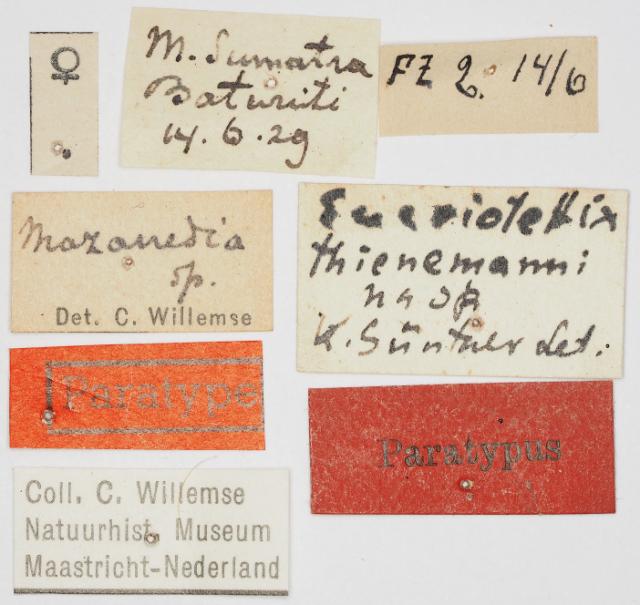 ♀
M. Sumatra
Baturiti
14. 6. 29
FZ 2. 14/6
Mazarredia
sp.
Det. C. Willemse
thienemanni
n sp
K. Günther det.
Paratype
Paratypus
Coll. C. Willemse
Natuurhist. Museum
Maastricht-Nederland